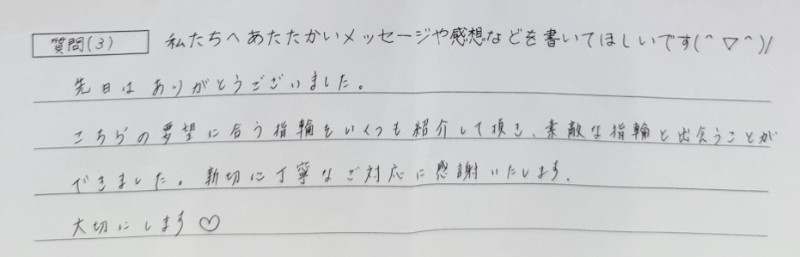 質問(3) 私たちへあたたかいメッセージや感想などを書いてほしいです(^▽^)/
先日はありがとうございました。
こちらの要望に合う指輪をいくつも紹介して頂き、素敵な指輪と出会うことが
できました。親切に丁寧なご対応に感謝いたします。
大切にします♡